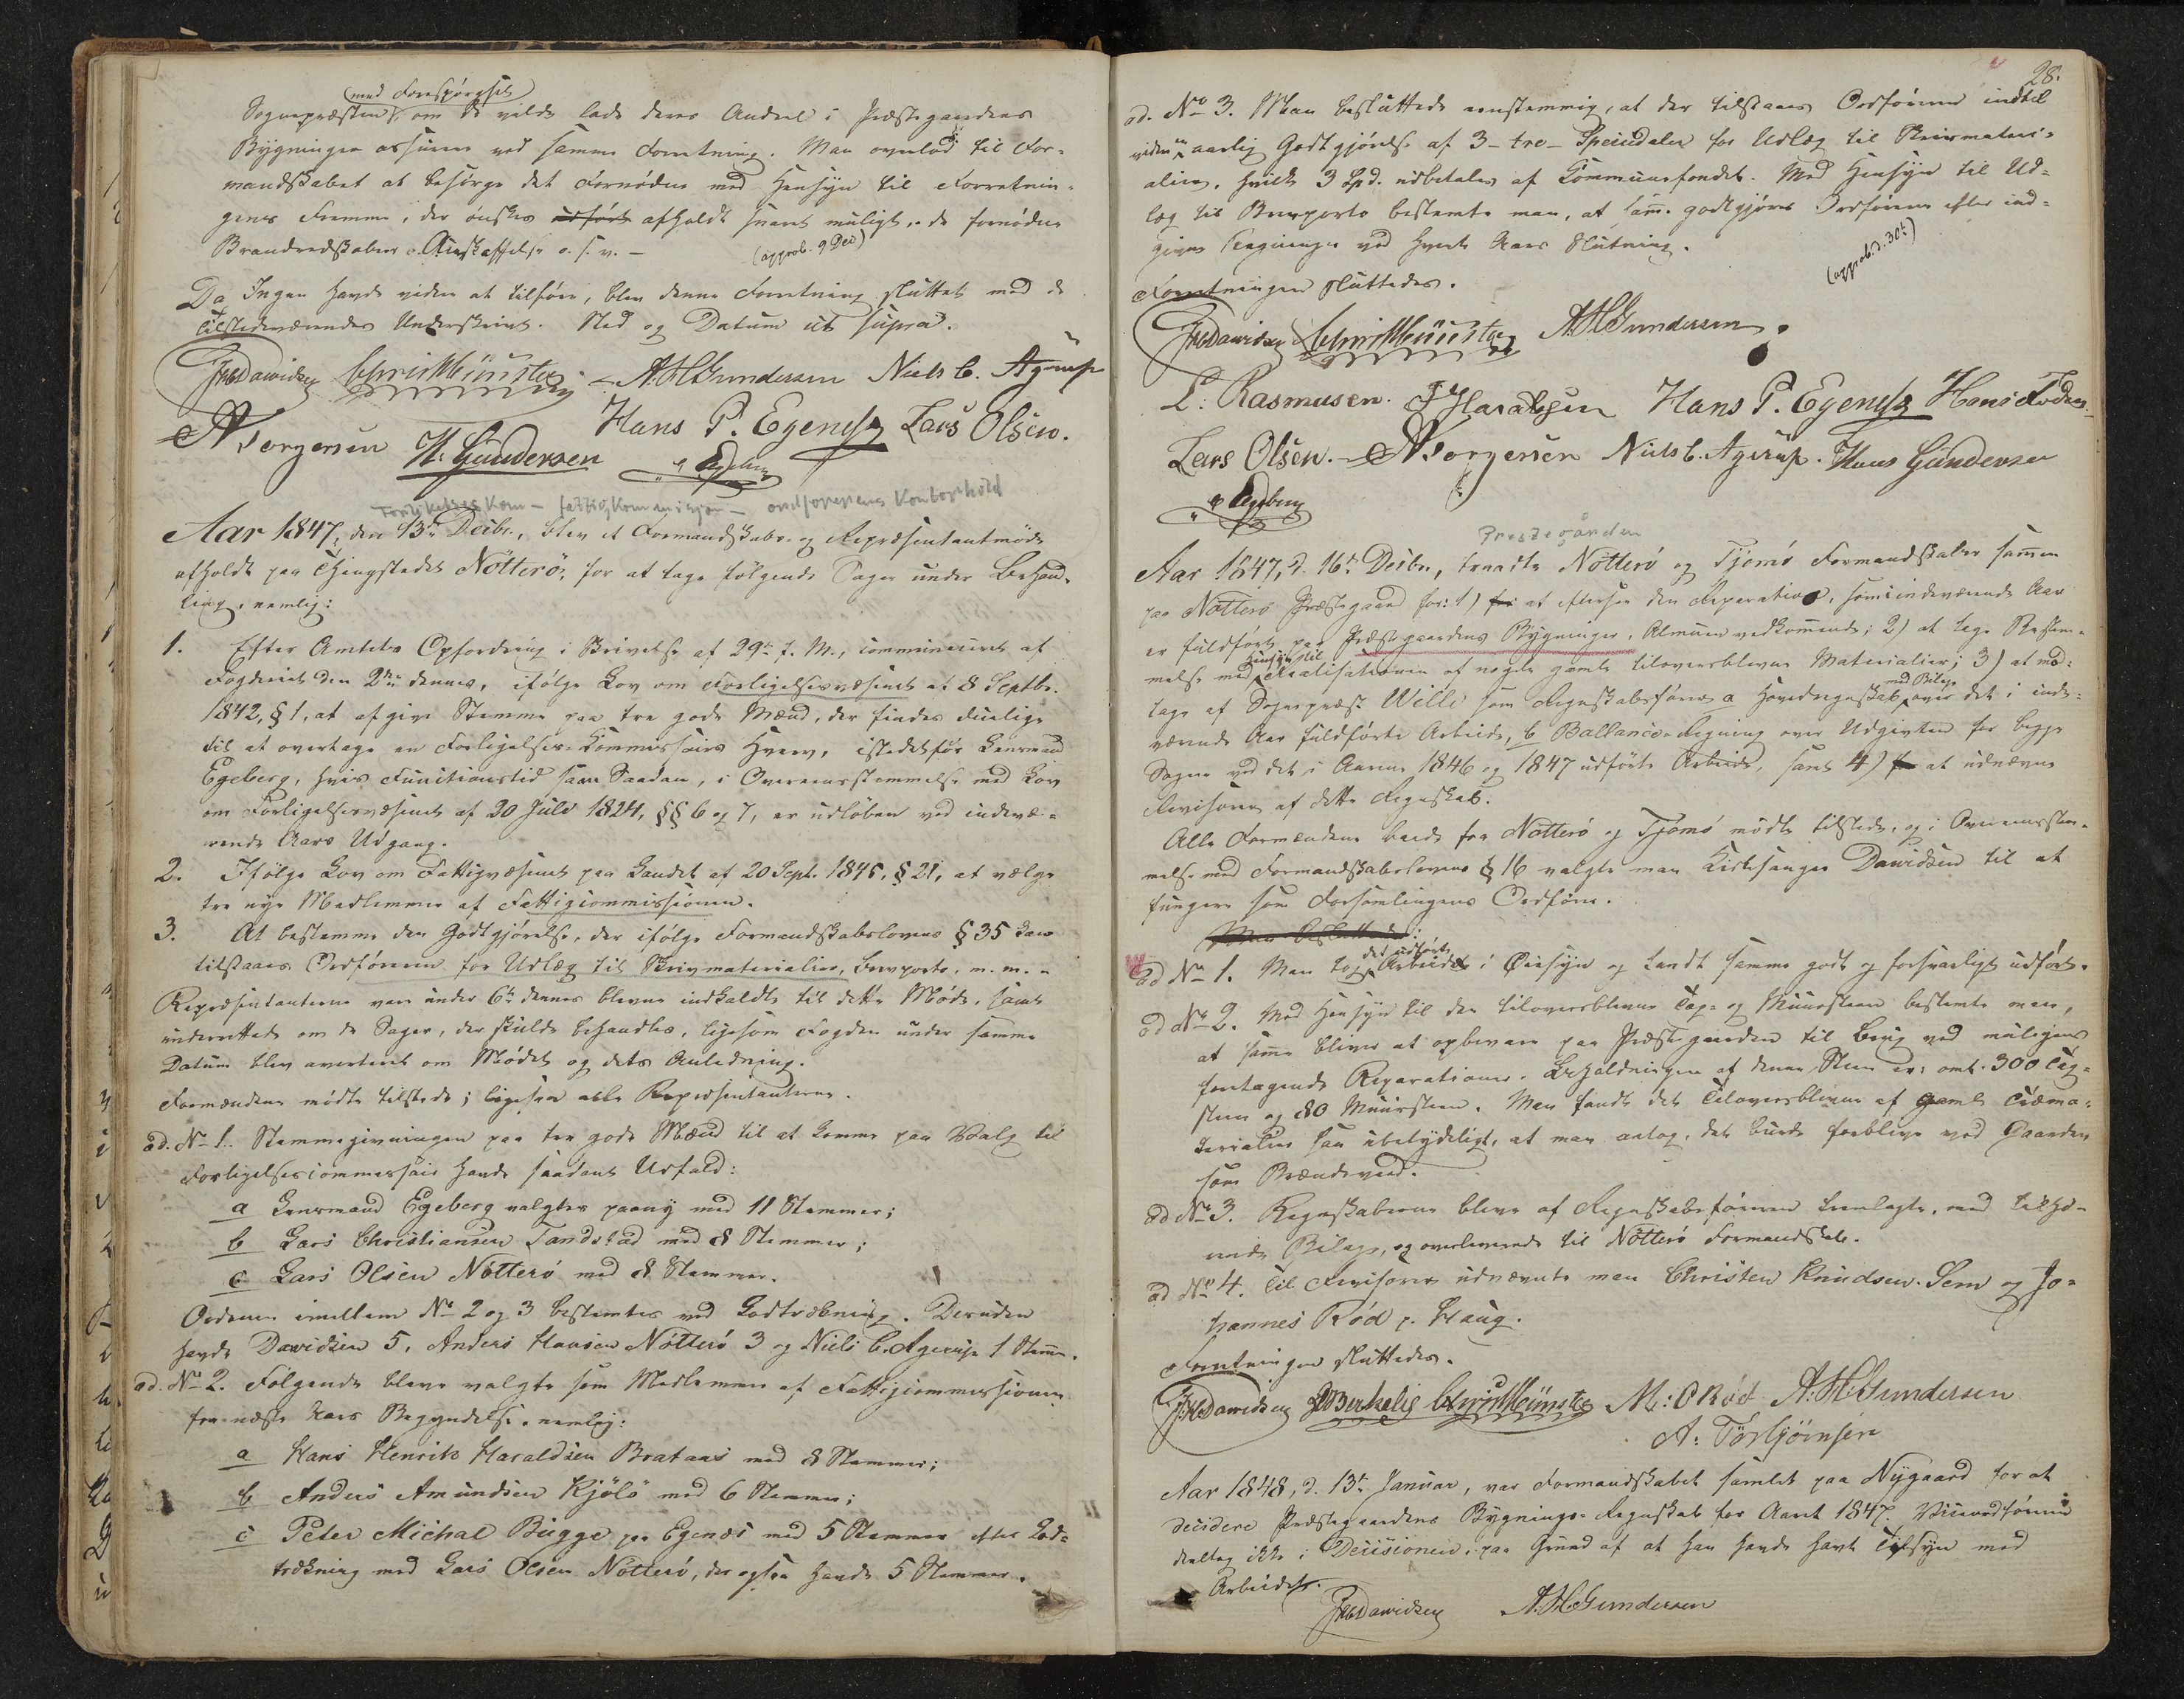 med Forespörgsel
Sognepræsten, om de vilde lade deres Andeel i Præstegaardens
Bygninger assurere ved samme Forretning. Man overlod til For-
mandskabet at besörge det Fornödne med Hensyn til Forretnin-
gens Fremme, der önskes udfört afholdt snarest muligt, de fornödne
Brandredskabers Anskaffelse o. s. v. —
(approb. 9 Dec)
Da Ingen havde videre at tilföre, blev denne Forretning sluttet med de
Tilstedeværendes Underskrivt. Sted og Datum ut supra.
Dawidsen Chris Münster A. H. Gundersen Niels C. Agerup
N Jorgensen H. Gundersen Hans P. Egenes Lars Olsen.
Egeberg
Forlikelses kom - fattigkommisjon - ordförerens kontorhold
Aar 1847, den 13de Decbr., blev et Formandskabs- og Repræsentantmöde
afholdt paa Thingstedet Nötterö, for at tage fölgende Sager under Behand-
ling, nemlig:
1. Efter Amtets Opfordring i Skrivelse af 29de f. M., communiceret af
Fogderiet den 2den dennes, ifölge Lov om Forligelsesvæsenet af 8 Septbr.
1842, § 1, at afgive Stemme paa tre gode Mænd, der findes duelige
til at overtage en Forligelses-Kommissairs Hverv, istedetfor Lensmand
Egeberg, hvis Functionstid som Saadan, i Overeensstemmelse med Lov
om Forligelsesvæsenet af 20 Juli 1824, §§ 6 og 7, er udlöben ved indevæ-
rende Aars Udgang.
2. Ifölge Lov om Fattigvæsenet paa Landet af 20 Sept. 1845, § 21, at vælge
tre nye Medlemmer af Fattigcommissionen.
3. At bestemme den Godtgjörelse, der ifölge Formandskabslovens § 35 kan
tilstaaes Ordföreren for Udlæg til Skrivmaterialier, Brevporto, m. m. -
Repræsentanterne vare under 6te dennes blevne indkaldte til dette Möde, samt
underrettet om de Sager, der skulde behandles, ligesom Fogden under samme
Datum blev averteret om Mödet og dets Anledning.
Formændene mödte tilstede; ligesaa alle Repræsentanterne.
ad. No 1. Stemmegivningen paa tre gode Mænd til at komme paa Valg til
Forligelsescommissair havde saadant Udfald:
a Lensmand Egeberg valgtes paany med 11 Stemmer;
b Lars Christiansen Tandstad med 8 Stemmer;
c Lars Olsen Nötterö med 8 Stemmer.
Ordenen imellem No 2 og 3 bestemtes ved Lodtrækning. Desuden
havde Dawidsen 5, Anders Hansen Nötterö 3 og Niels C. Agerup 1 Stemme.
ad. No 2. Fölgende bleve valgte som Medlemmer af Fattigcommissionen
fra næste Aars Begyndelse, nemlig:
a Hans Henrik Haraldsen Brataas med 8 Stemmer;
b Anders Amundsen Kjölö med 6 Stemmer;
c Peter Michal Bugge paa Egenæs med 5 Stemmer efter Lod-
trækning med Lars Olsen Nötterö, der ogsaa havde 5 Stemmer.
28.
ad. No 3. Man besluttede eenstemmig, at der tilstaaes Ordföreren indtil
videre en aarlig Godtgjörelse af 3 - tre - Speciedaler for Udlæg til Skrivmateri-
alier, hvilke 3 Spd. udbetales af Kommunefondet. Med Hensyn til Ud-
læg til Brevporto bestemte man, at samme godtgjöres Ordföreren efter ind-
given Regninger ved hvert Aars Slutning.
(approb. d. 30te)
Forretningen sluttedes.
Dawidsen Chris Münster A. H. Gundersen
L. Rasmusen. Haraldsen Hans P. Egenes Hans Foden
Lars Olsen. N Jorgensen Niels C. Agerup. Hans Gundersen
Egeberg
Prestegården
Aar 1847, d. 16de Decbr., traadte Nötterö og Tjömö Formandskaber sammen
paa Nötterö Præstegaard for: 1) for at eftersee den Reparation, som i indeværende Aar
er fuldfört paa Præstegaardens Bygninger, Almuen vedkommende; 2) at tage Bestem-
melse med Hensyn til Realisationen af nogle gamle tiloversblevne Materialier; 3) at mod-
tage af Sognepræst Wille som Regnskabsförer a Hovedregnskab med Bilage over det i inde-
værende Aar fuldförte Arbeide, b Ballance-Regning over Udgivten for begge
Sogne ved det i Aarene 1846 og 1847 udförte Arbeide, samt 4) for at udnævne
Revisorer af dette Regnskab.
Alle Formændene baade fra Nötterö og Tjömö mödte tilstede, og i Overeensstem-
melse med Formandskabslovens § 16 valgte man Kirkesanger Dawidsen til at
fungere som Forsamlingens Ordförer.
Man besluttede:
ad No 1. Man tog det udförte Arbeide i Öiesyn og fandt samme godt og forsvarligt udfört.
ad No 2. Med Hensyn til den tiloversblevne Tag- og Muursteen bestemte man,
at samme bliver at opbevare paa Præstegaarden til Brug ved muligens
foretagende Reparationer. Beholdningen af denne Steen er: omt. 300 Tag-
steen og 80 Muursteen. Man fandt det Tiloversblevne af gamle Træma-
terialier saa ubetydeligt, at man antog, det burde forblive ved Gaarden
som Brændeved.
ad No 3. Regnskaberne bleve af Regnskabsföreren fremlagte, med tilhö-
rende Bilage, og overleverede til Nötterö Formandskab.
ad No 4. Til Revisorer udnævnte man Christen Knudsen Sem og Jo-
hannes Röd p. Haug.
Forretningen sluttedes.
Dawidsen Berhelig Chris Münster M: O Röd A. H. Gundersen
A: Torbjörnsen
Aar 1848, d. 13de Januar, var Formandskabet samlet paa Nygaard for at
decidere Præstegaardens Bygnings-Regnskab for Aaret 1847. Viceordföreren
deeltog ikke i Decisionen, paa Grund af at han havde havt Tilsyn med
Arbeidet.
Dawidsen A. H. Gundersen